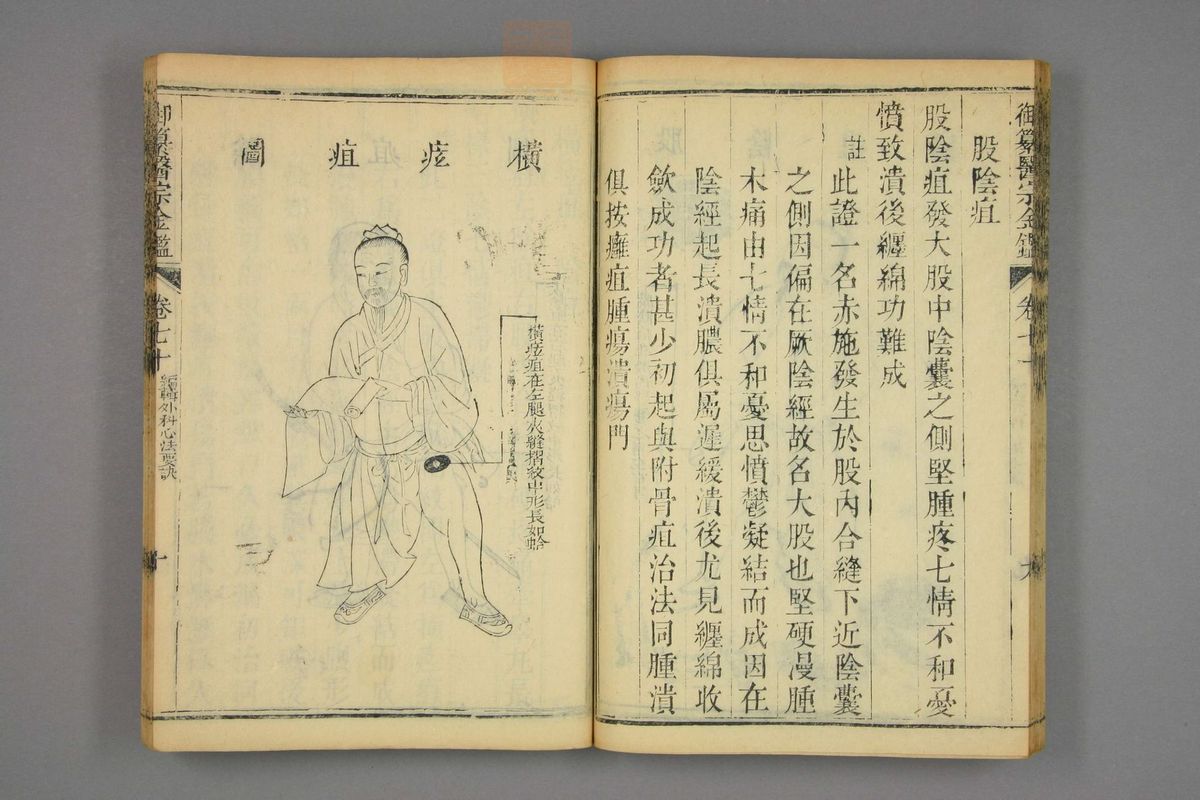 御纂醫宗金鑑
卷七十一
九
股陰疽
股陰疽發大股中陰囊之側堅腫疼七情不和憂
憤致潰後纏綿功難成
註
此證一名赤施發生於股內合縫下近陰囊
之側因偏在厥陰經故名大股也堅硬漫腫
木痛由七情不和憂思憤鬱凝結而成因在
陰經起長潰膿俱屬遲緩潰後尤見纏綿收
斂成功者甚少初起與附骨疽治法同腫潰
俱按癰疽腫瘍潰瘍門
橫痃疽圖
橫痃疽在左腿夾縫摺紋中形長如蛤
御纂醫宗金鑑
卷七十
編輯外科心法要訣
十